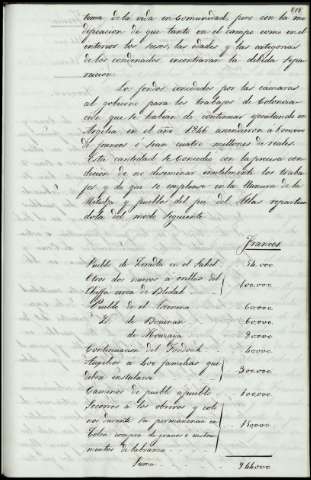 tema de la vida en comunidad, pero con la mo-
dificacion de que tanto en el campo como en el
interior los sexos, las edades y las categorias
de los condenados encontraran la debida sepa-
racion.
Los fondos concedidos por las cámaras
al gobierno para los trabajos de Colonizacion
que se habian de continuar ejecutando en
Argelia en el año 1846 ascendieron á
de francos ó sean cuatro millones de reales.
Esta cantidad se concedió con la precisa con-
dicion de no diseminar inutilmente los traba-
jos y de que se emplease en la llanura de la
Metidja y pueblos del pie del Atlas repartien-
dola del modo siguiente
Francos
Pueblo de en el Sahel 
Otros dos nuevos á orillas del
Chiffa cerca de Blidah 100,000
Pueblo de el 60,000
Id. de 60,000
de Mouzaia
Continuacion del 
Auxilios á las familias que
deben instalarse 300,000
Caminos de pueblo á pueblo 100,000
Socorros á los obreros y colo-
nos durante su permanencia en
compra de granos é instru-
mentos de labranza
Suma